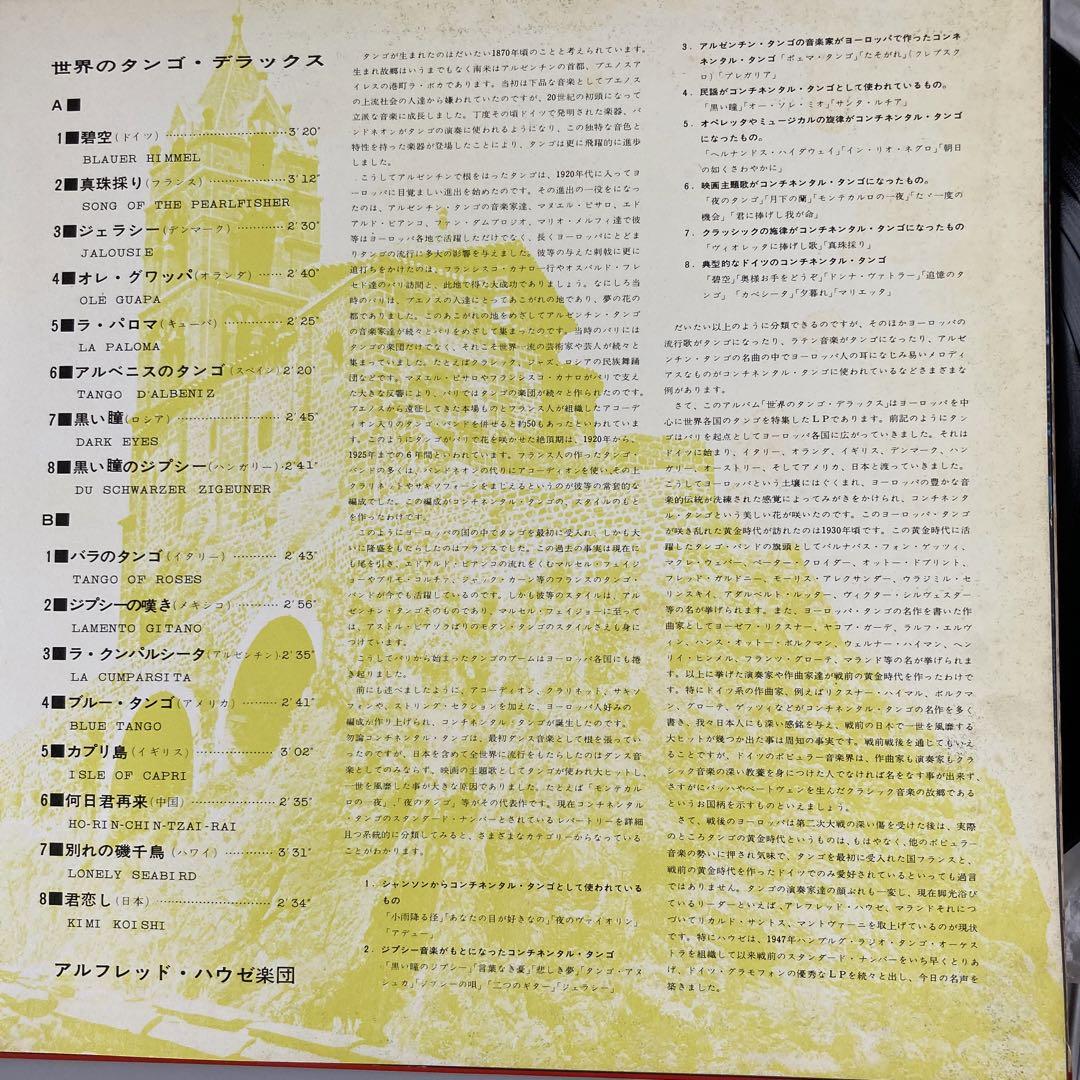 世界のタンゴ・デラックス
A■
1■碧空(ドイツ)……………3′20″
BLAUER HIMMEL
2■真珠採り(フランス)……………3′12″
SONG OF THE PEARLFISHER
3■ジェラシー(デンマーク)……2′30″
JALOUSIE
4■オレ・グワッパ(オランダ)……2′40″
OLÉ GUAPA
5■ラ・パロマ(キューバ)……………2′25″
LA PALOMA
6■アルベニスのタンゴ(スペイン)2′20″
TANGO D'ALBENIZ
7■黒い瞳(ロシア)……………2′45″
DARK EYES
8■黒い瞳のジプシー(ハンガリー)…2′41″
DU SCHWARZER ZIGEUNER
B■
1■バラのタンゴ(イタリー)…………2′43″
TANGO OF ROSES
2■ジプシーの嘆き(メキシコ)………2′56″
LAMENTO GITANO
3■ラ・クンパルシータ(アルゼンチン)2′35″
LA CUMPARSITA
4■ブルー・タンゴ(アメリカ)………2′41″
BLUE TANGO
5■カプリ島(イギリス)……………3′02″
ISLE OF CAPRI
6■何日君再来(中国)……………2′35″
HO-RIN-CHIN-TZAI-RAI
7■別れの磯千鳥(ハワイ)…………3′31″
LONELY SEABIRD
8■君恋し(日本)……………2′34″
KIMI KOISHI
アルフレッド・ハウゼ楽団
タンゴが生まれたのはだいたい1870年頃のことと考えられています。
生まれ故郷はいうまでもなく南米はアルゼンチンの首都、ブエノスア
イレスの港町ラ・ボカであります。当初は下品な音楽としてブエノス
の上流社会の人達から嫌われていたのですが、20世紀の初頭になって
立派な音楽に成長しました。丁度その頃ドイツで発明された楽器、バ
ンドネオンがタンゴの演奏に使われるようになり、この独特な音色と
特性を持った楽器が登場したことにより、タンゴは更に飛躍的に進歩
しました。
こうしてアルゼンチンで根をはったタンゴは、1920年代に入ってヨ
ーロッパに目覚ましい進出を始めたのです。その進出の一役をになっ
たのは、アルゼンチン・タンゴの音楽家達、マヌエル・ピサロ、エド
アルド・ビアンコ、ファン・ダムブロジオ、マリオ・メルフィ達で彼
等はヨーロッパ各地で活躍しただけでなく、長くヨーロッパにとどま
りタンゴの流行に多大の影響を与えました。彼等の与えた刺戟に更に
追打ちをかけたのは、フランシスコ・カナロ一行やオスバルド・フレ
セド達のパリ訪問と、此地で得た大成功でありましょう。なにしろ当
時のパリは、ブエノスの人達にとってあこがれの地であり、夢の花の
都でありました。このあこがれの地をめざしてアルゼンチン・タンゴ
の音楽家達が続々とパリをめざして集まったのです。当時のパリには
タンゴの楽団だけでなく、それこそ世界一流の芸術家や芸人が続々と
集まっていました。たとえばクラシック、ジャズ、ロシアの民族舞踊
団などです。マヌエル・ピサロやフランシスコ・カナロがパリで支え
た大きな反響により、パリではタンゴの楽団が続々と作られたのです。
ブエノスから遠征してきた本場ものとフランス人が組織したアコーデ
ィオン入りのタンゴ・バンドを併せると約50もあったといわれていま
す。このようにタンゴがパリで花を咲かせた絶頂期は、1920年から、
1925年までの6年間といわれています。フランス人の作ったタンゴ・
バンドの多くは、バンドネオンの代りにアコーディオンを使い、その上
クラリネットやサキソフォーンをまじえるというのが彼等の常套的な
編成でした。この編成がコンチネンタル・タンゴの、スタイルのもと
を作ったわけです。
このようにヨーロッパの国の中でタンゴを最初に受入れ、しかも大
いに隆盛をもたらしたのはフランスでした。この過去の事実は現在に
も尾を引き、エドアルド・ビアンコの流れをくむマルセル・フェイジ
ョーやプリモ・コルチァ、ジャック・カーン等のフランスのタンゴ・
バンドが今でも活躍しているのです。しかも彼等のスタイルは、アル
ゼンチン・タンゴそのものであり、マルセル・フェイジョーに至って
は、アストル・ピアソラばりのモダン・タンゴのスタイルさえも身に
つけています。
こうしてパリから始まったタンゴのブームはヨーロッパ各国にも捲
き起りました。
前にも述べましたように、アコーディオン、クラリネット、サキソ
フォンや、ストリング・セクションを加えた、ヨーロッパ人好みの
編成が作り上げられ、コンチネンタル・タンゴが誕生したのです。
勿論コンチネンタル・タンゴは、最初ダンス音楽として根を張ってい
ったのですが、日本を含めて全世界に流行をもたらしたのはダンス音
楽としてのみならず、映画の主題歌としてタンゴが使われ大ヒットし、
一世を風靡した事が大きな原因でありました。たとえば「モンテカル
ロの一夜」、「夜のタンゴ」等がその代表作です。現在コンチネンタ
ル・タンゴのスタンダード・ナンバーとされているレパートリーを詳細
且つ系統的に分類してみると、さまざまなカテゴリーからなっている
ことがわかります。
1．シャンソンからコンチネンタル・タンゴとして使われている
もの
「小雨降る径」「あなたの目が好きなの」「夜のヴァイオリン」
「アデュー」
2．ジプシー音楽がもとになったコンチネンタル・タンゴ
「黒い瞳のジプシー」「言葉なき憂」「悲しき夢」「タンゴ・アヌ
シュカ」「ジプシーの唄」「二つのギター」「ジェラシー」
3．アルゼンチン・タンゴの音楽家がヨーロッパで作ったコンチ
ネンタル・タンゴ「ポエマ・タンゴ」「たそがれ」(クレプスク
ロ)「プレガリア」
4．民謡がコンチネンタル・タンゴとして使われているもの。
「黒い瞳」「オー・ソレ・ミオ」「サンタ・ルチア」
5．オペレッタやミュージカルの旋律がコンチネンタル・タンゴ
になったもの。
「ヘルナンドス・ハイダウェイ」「イン・リオ・ネグロ」「朝日
の如くさわやかに」
6．映画主題歌がコンチネンタル・タンゴになったもの。
「夜のタンゴ」「月下の蘭」「モンテカルロの一夜」「たゞ一度の
機会」「君に捧げし我が命」
7．クラッシックの施律がコンチネンタル・タンゴになったもの
「ヴィオレッタに捧げし歌」「真珠採り」
8．典型的なドイツのコンチネンタル・タンゴ
「碧空」「奥様お手をどうぞ」「ドンナ・ヴァトラー」「追憶のタ
ンゴ」「カペシータ」「夕暮れ」「マリエッタ」
だいたい以上のように分類できるのですが、そのほかヨーロッパの
流行歌がタンゴになったり、ラテン音楽がタンゴになったり、アルゼ
ンチン・タンゴの名曲の中でヨーロッパ人の耳になじみ易いメロディ
アスなものがコンチネンタル・タンゴに使われているなどさまざまな
例があります。
さて、このアルバム「世界のタンゴ・デラックス」はヨーロッパを中
心に世界各国のタンゴを特集したLPであります。前記のようにタン
ゴはパリを起点としてヨーロッパ各国に広がっていきました。それは
ドイツに始まり、イタリー、オランダ、イギリス、デンマーク、ハン
ガリー、オーストリー、そしてアメリカ、日本と渡っていきました。
こうしてヨーロッパという土壌にはぐくまれ、ヨーロッパの豊かな音
楽的伝統が洗練された感覚によってみがきをかけられ、コンチネンタ
ル・タンゴという美しい花が咲いたのです。このヨーロッパ・タンゴ
が咲き乱れた黄金時代が訪れたのは1930年頃です。この黄金時代に活
躍したタンゴ・バンドの旗頭としてバルナバス・フォン・ゲッツィ、
マクレ・ウェバー、ペーター・クロイダー、オットー・ドブリント、
フレッド・ガルドニー、モーリス・アレクサンダー、ウラジミル・セ
リンスキイ、アダルベルト・ルッター、ヴィクター・シルヴェスター
等の名が挙げられます。また、ヨーロッパ・タンゴの名作を書いた作
曲家としてヨーゼフ・リクスナー、ヤコブ・ガーデ、ラルフ・エルヴ
ィン、ハンス・オットー・ボルクマン、ウェルナー・ハイマン、ヘン
リイ・ヒンメル、フランツ・グローテ、マランド等の名が挙げられま
す。以上に挙げた演奏家や作曲家達が戦前の黄金時代を作ったわけで
す。特にドイツ系の作曲家、例えばリクスナー・ハイマル、ボルクマ
ン、グローテ、ゲッツィなどがコンチネンタル・タンゴの名作を多く
書き、我々日本人にも深い感銘を与え、戦前の日本で一世を風靡する
大ヒットが幾つか出た事は周知の事実です。戦前戦後を通じてもいえ
ることですが、ドイツのポピュラー音楽界は、作曲家も演奏家もクラ
シック音楽の深い教養を身につけた人でなければ名をなす事が出来ず、
さすがにバッハやベートヴェンを生んだクラシック音楽の故郷である
というお国柄を示すものといえましょう。
さて、戦後のヨーロッパは第二次大戦の深い傷を受けた後は、実際
のところタンゴの黄金時代というものは、もはやなく、他のポピュラー
音楽の勢いに押され気味で、タンゴを最初に受入れた国フランスと、
戦前の黄金時代を作ったドイツでのみ愛好されているといっても過言
ではありません。タンゴの演奏家達の顔ぶれも一変し、現在脚光浴び
ているリーダーといえば、アルフレッド・ハウゼ、マランドそれにつ
づいてリカルド・サントス、マントヴァーニを取上げているのが現状
です。特にハウゼは、1947年ハンブルグ・ラジオ・タンゴ・オーケス
トラを組織して以来戦前のスタンダード・ナンバーをいち早くとりあ
げ、ドイツ・グラモフォンの優秀なLPを続々と出し、今日の名声を
築きました。